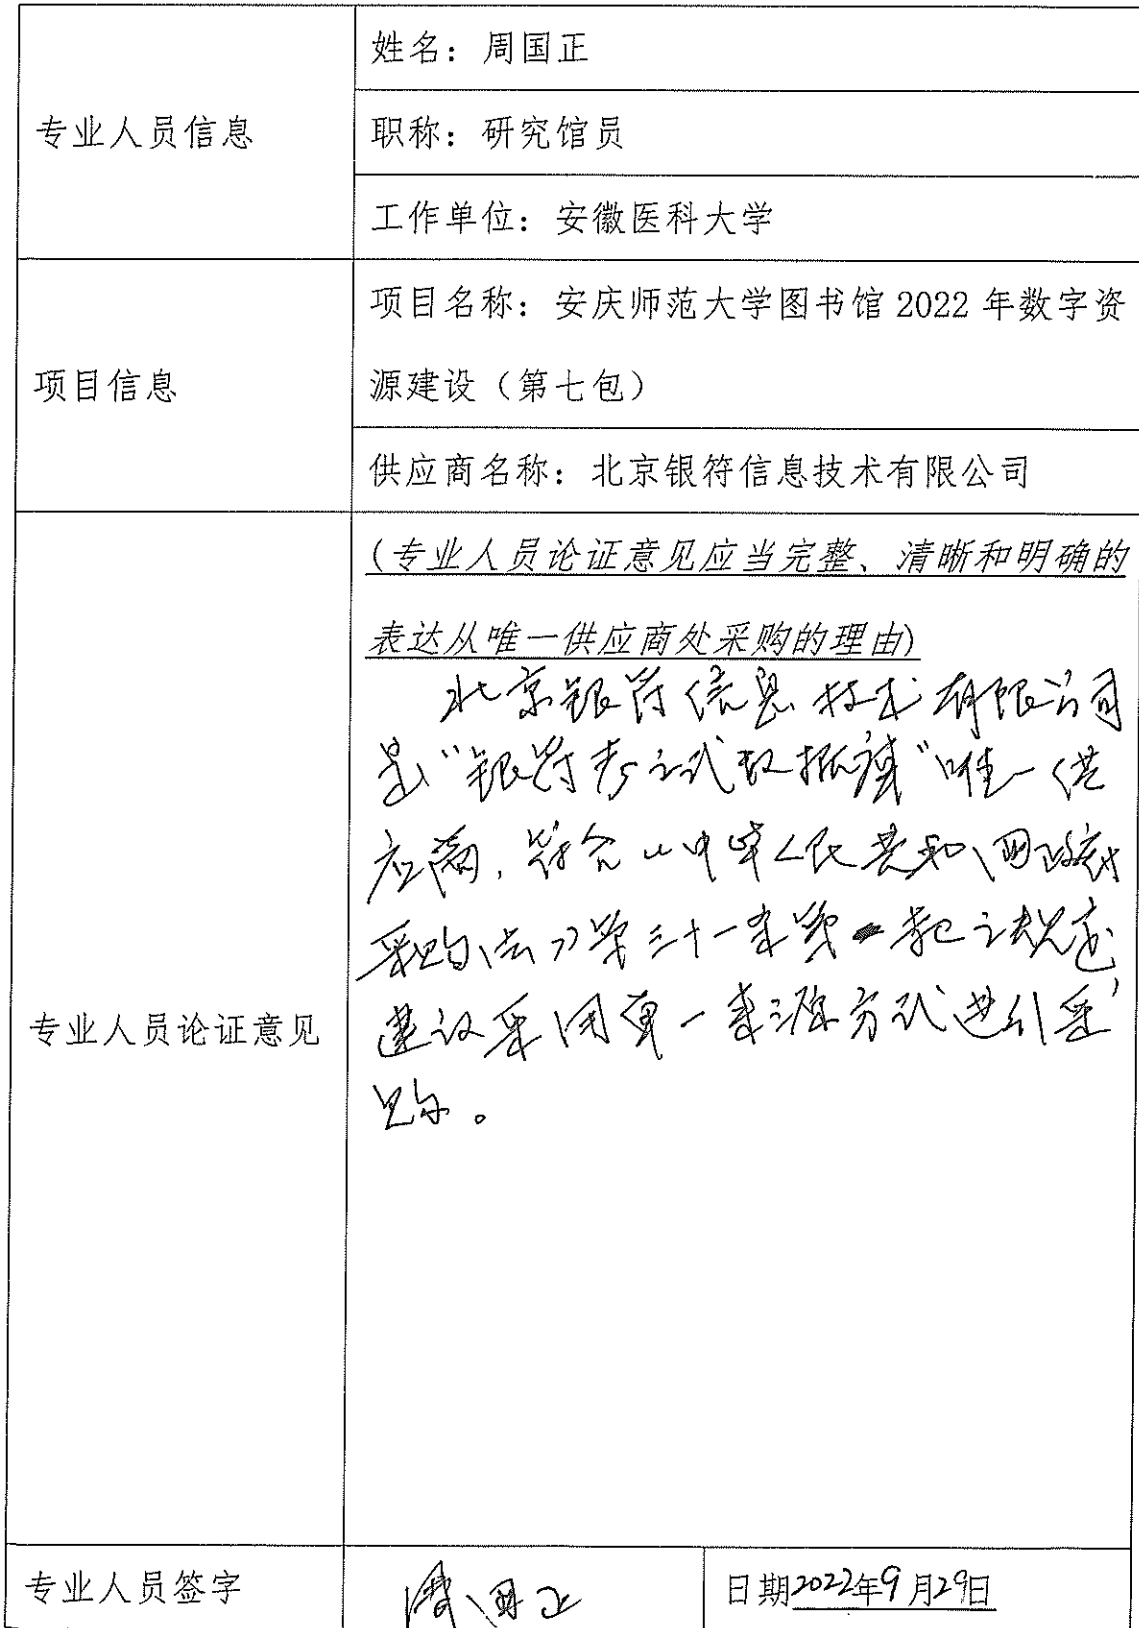 专业人员信息
姓名：周国正
职称：研究馆员
工作单位：安徽医科大学
项目信息
项目名称：安庆师范大学图书馆 2022 年数字资
源建设（第七包）
供应商名称：北京银符信息技术有限公司
专业人员论证意见
(专业人员论证意见应当完整、清晰和明确的
表达从唯一供应商处采购的理由)
北京银符信息技术有限公司
是“银符考试数据库”唯一供
应商，符合《中华人民共和国政府
采购法》第三十一条第一款之规定，
建议采用单一来源方式进行采
购。
专业人员签字
周国正
日期2022年9月29日